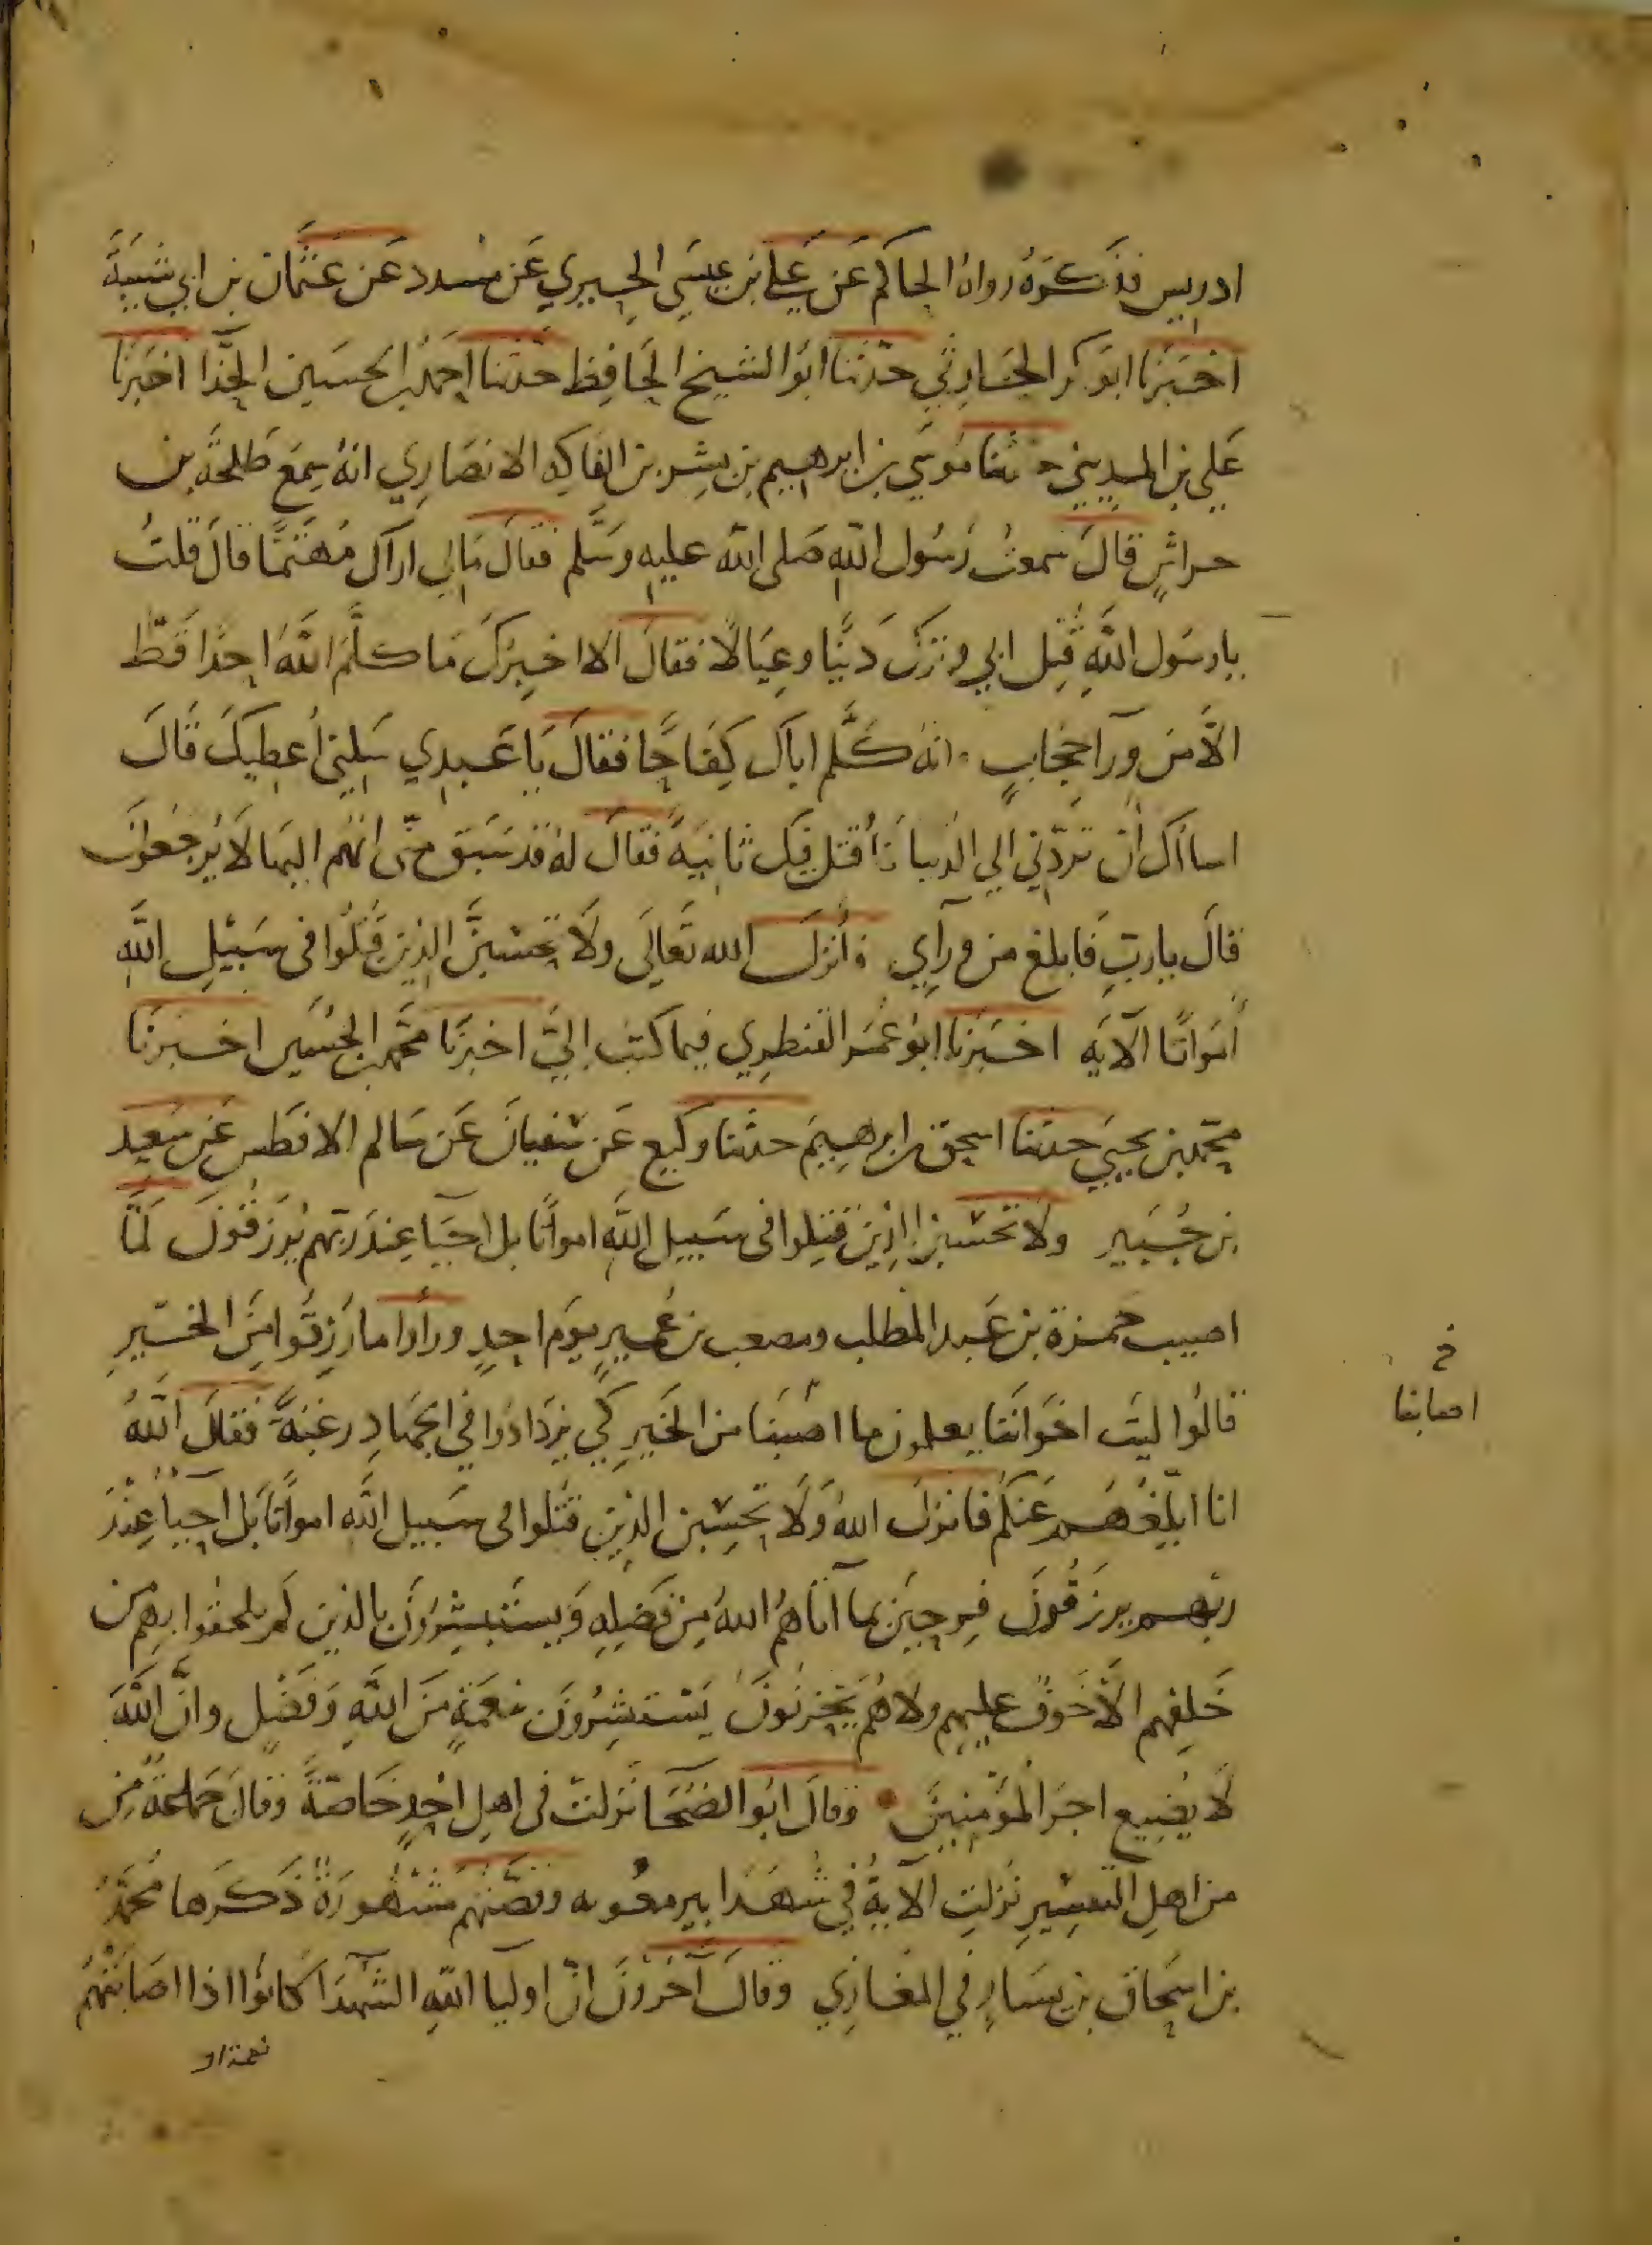 ادريس فذَكَرَهُ رواهُ الحاكم عَن عَلي بن عيسَى الحِيري عَن مسدد عَن عثمان بن ابي شيبَةَ
اخبَرنَا ابَو بكر الحَارِثي حدّثنا ابوَا الشيخ الحَافِظ حَدثنا احمَدبن الحسَين الحذَّا اخبَرنَا
عَلي بن المديني حدثنا مُوسَى بن ابرهيم بن بِشر بن الفَاكِهِ الانصَارِي انهُ سِمعَ طَلحَة بن
حراشٍ قالَ سَمعتُ رَسُول اللهِ صَلى اللهُ عليهِ وسَلَّم فقالَ مَالي اراكَ مُهتمًّا قالَ قلتُ
يا رسَول اللَّهِ قُتِل ابي وتركَ دَيْنًا وعِيَالًا فقالَ الا اخبِرُكَ مَا كَلَّمَ اللَّهُ احَدًا قَطّ
الَّا مِن وَرآ حِجَابٍ انهُ كَلَّم اباكَ كِفَاحًا فقالَ يَا عَبدِي سَلِني اُعطِيكَ قَالَ
اسااَلكَ اَن تَردّني الي الدنيا فَأُقتل فيكَ ثانيَةً فقَالَ لهُ قد سَبَق مِنّى انهُم اليهَا لَا يُرجَعُونَ
قالَ يا ربِّ فَابلغ من ورآي فأنزَلَ الله تعَالَى ولَا تَحسَبَنَّ الذِينَ قُتلُوا فى سَبيْلِ اللَّهِ
أَموَاتًا الآيَه اخبَرَنا ابوُ عُمَر القنطرِي فيما كتَبَ اِلَيَّ اخبرَنَا محَّمدبن الحُسَين اخبَرنَا
محّمدبن يحيىَ حدثنا اسحق بن ابرهِيمَ حدثنا وكيع عَن سُفيانَ عَن سَالم الافطَس عَن سَعيد
بن جُبَير ولَا تَحسَبنَّ الذِينَ قُتِلوا فى سَبيل اللَّهِ امواتًا بل احيَا عِندَ ربّهم يُرزَقُونَ لَمَّا
اصيب حَمزة بن عَبد المطلب ومصعب بن عُمَيرٍ يوَم احدٍ وراَوا ما رُزِقُوا مِنَ الخيرِ
قالُوا ليتَ اخوَانَنا يعلمون ما اصَبنَا من الخَيرِ كَي يزدَادُوا في الجهَادِ رغبَةً فقالَ اللَّهُ
انا ابلِّغُهُم عَنكم فانزلَ اللهُ وَلَا تَحسِبَن الذِين قُتلوا فى سَبيل اللَّهِ امواتًا بَل احيآءٌ عِنْدَ
ربّهم يرزَقُونَ فرِحِينَ بمآ آتاهُم اللهُ مِن فَضِلهِ وَيستَبشِرُونَ بالذين لَم يلحقوا بِهِم مِن
خَلِفهِم الَّا خَوفٌ عليهِم ولا هُم يَحزنُونَ يَسْتَبشِرُونَ بنعمَةٍ مِنَ اللَّهِ وَفضْلٍ وانَّ اللَّهَ
لَا يُضِيع اجرَ المُؤمِنينَ وقالَ ابوُا الضحَا نزَلتْ فى اهِل اُحدٍ خَاصّةً وقالَ جَماعَةٌ مِن
من اهلِ التفسِيرِ نزلتِ الآيةُ في شُهَدا بير معُونه وقصَّتهُم مَشْهُورَةٌ ذَكرَها مُحمَّدُ
بن اسحَاق بن يسَارٍ في المغَازِي وقالَ آخَرُونَ انّ اوليا اللّهِ الشهَدَا كانُوا اذا اصَابَتْهُم
خ
اصابنا